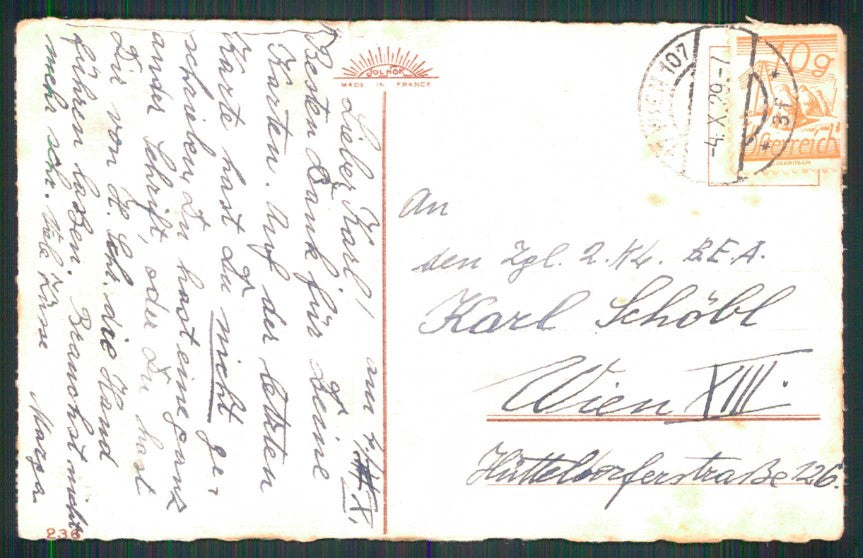 SOLNOK
MADE IN FRANCE
Lieber Karl! am 4./X.
Besten Dank für Deine
Karten. Auf der letzten
Karte hast du nicht ge-
schrieben. Du hast eine ganz
ander Schrift, oder Du hast
Dir von H. Schl. die Hand
führen lassen. Brauchst nicht
mehr schr. Viele Küsse Marga.
236
WIEN 107
-4.X.29-7
* 3F *
10g
Österreich
An
den Zgl. 2. Kl. B.E.A.
Karl Schöbl
Wien XIII.
Hütteldorferstraße 126.